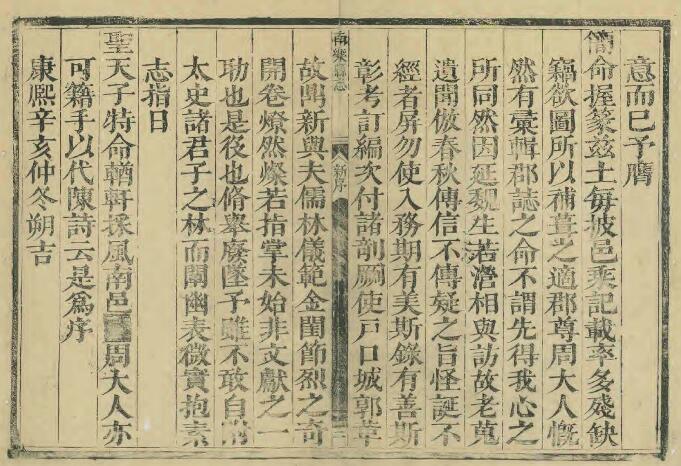 意而已予膺
簡命握篆兹土每披邑乘記載率多殘缺
竊欲圖所以補葺之適郡尊周大人慨
然有彙輯郡誌之命不謂先得我心之
所同然因延魏生若瀅相與訪故老蒐
遺聞倣春秋傳信不傳疑之旨怪誕不
經者屏勿使入務期有美斯錄有善斯
彰考訂編次付諸剞劂使戸口城郭革
南樂縣志
新序
故鼎新與夫儒林儀範金閨節烈之奇
開卷燎然燦若指掌未始非文獻之一
助也是役也脩舉廢墜予雖不敢自附
太史諸君子之林而闡幽表微實抱素
志指日
聖天子特命輶軒採風南邑周大人亦
可藉手以代陳詩云是爲序
康熙辛亥仲冬朔吉